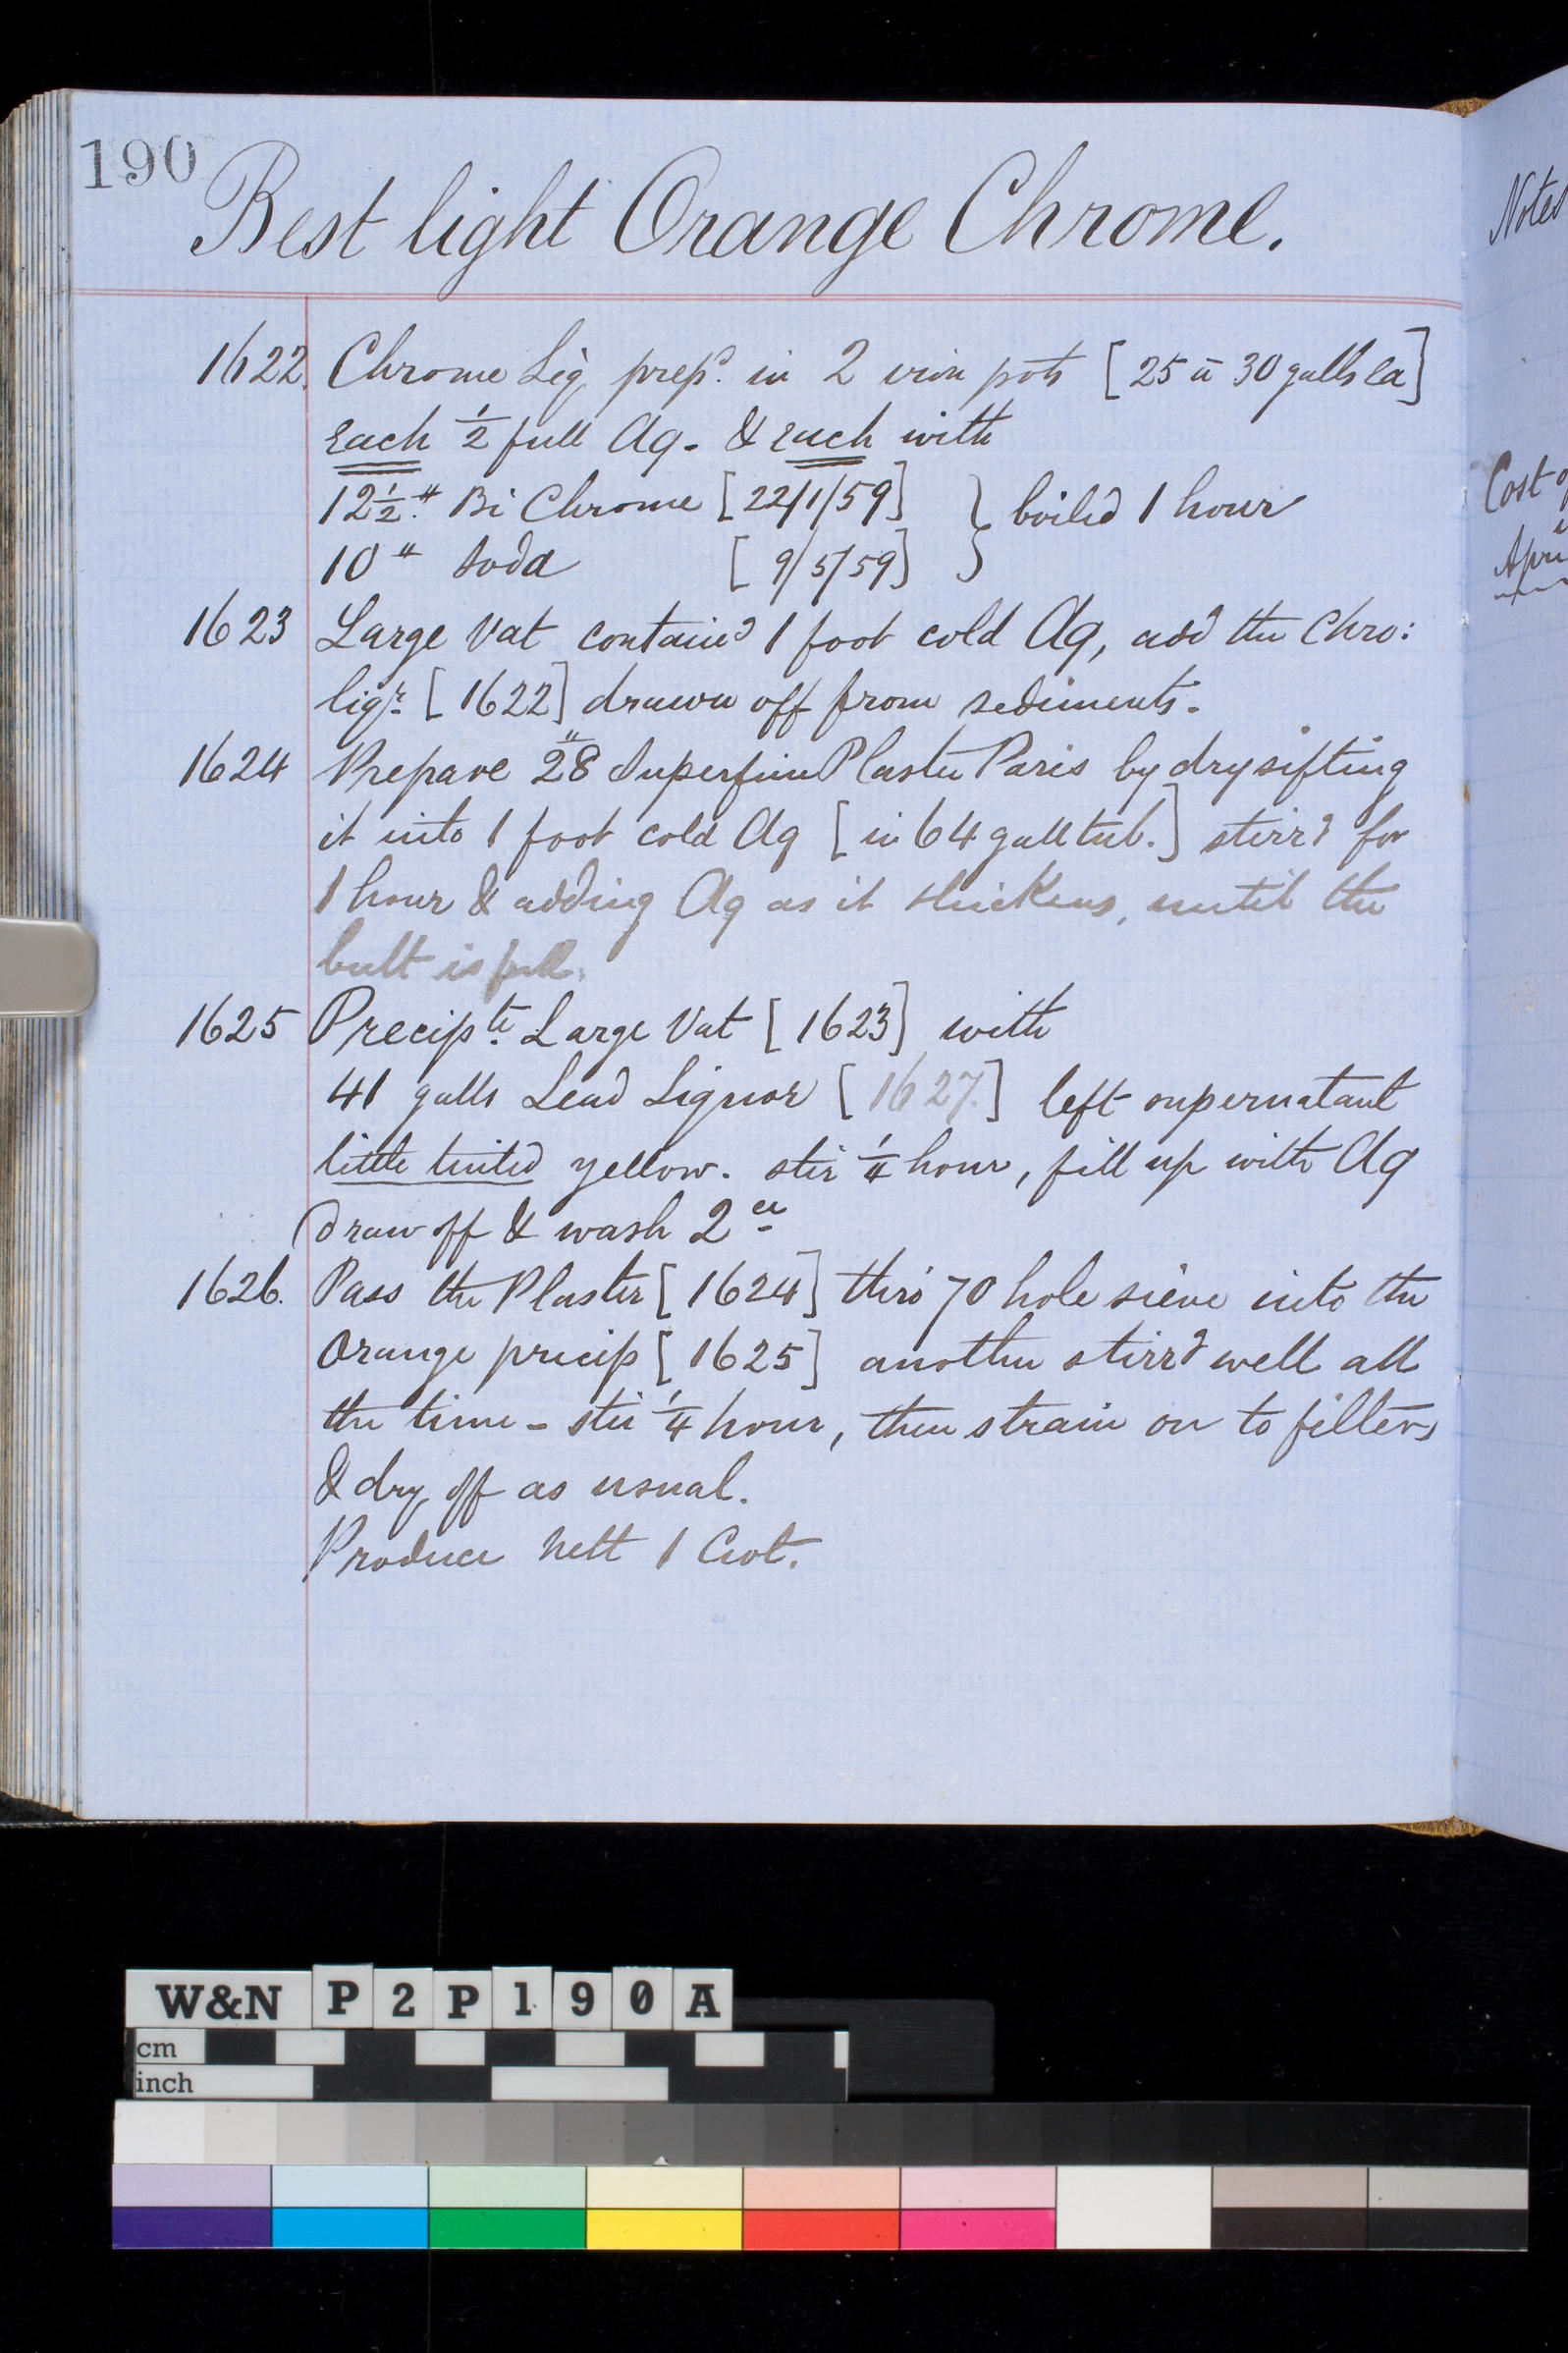 190
Best light Orange Chrome.
1622. Chrome Liq prepd. in 2 iron pots [25 à 30 galls ea]
Each ½ full Aq. & each with
12½ " Bi Chrome [22/1/59] } boiled 1 hour
10 " Soda [9/5/59]
1623 Large Vat containd 1 foot cold Aq, add the Chro:
liqr. [1622] drawn off from sediments.
1624 Prepare 28" Superfine Plaster Paris by dry sifting
it into 1 foot cold Aq [in 64 gall tub.] stirrd for
1 hour & adding Aq as it thickens, until the
butt is full.
1625 Precipte. Large Vat [1623] with
41 galls Lead Liquor [1627.] left supernatant
little tinted yellow. stir ¼ hour, fill up with Aq
draw off & wash 2ce
1626. Pass the Plaster [1624] thro' 70 hole sieve into the
Orange precip [1625] another stirrd well all
the time - stir ¼ hour, then strain on to filters
& dry off as usual.
Produce nett 1 Cwt.
Notes
Cost
W&N P2P190A
cm
inch